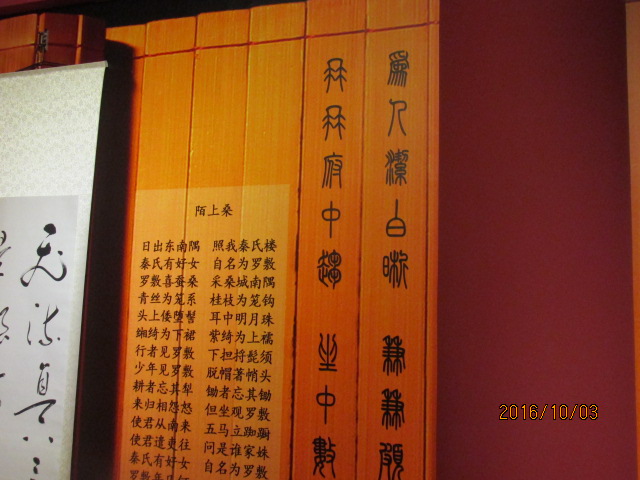 為人潔白晰 兼兼頗
冉冉府中趨 坐中數
陌上桑
日出东南隅 照我秦氏楼
秦氏有好女 自名为罗敷
罗敷喜蚕桑 采桑城南隅
青丝为笼系 桂枝为笼钩
头上倭堕髻 耳中明月珠
缃绮为下裙 紫绮为上襦
行者见罗敷 下担将髭须
少年见罗敷 脱帽著帩头
耕者忘其犁 锄者忘其锄
来归相怨怒 但坐观罗敷
使君从南来 五马立踟蹰
使君遣吏往 问是谁家姝
秦氏有好女 自名为罗敷
2016/10/03